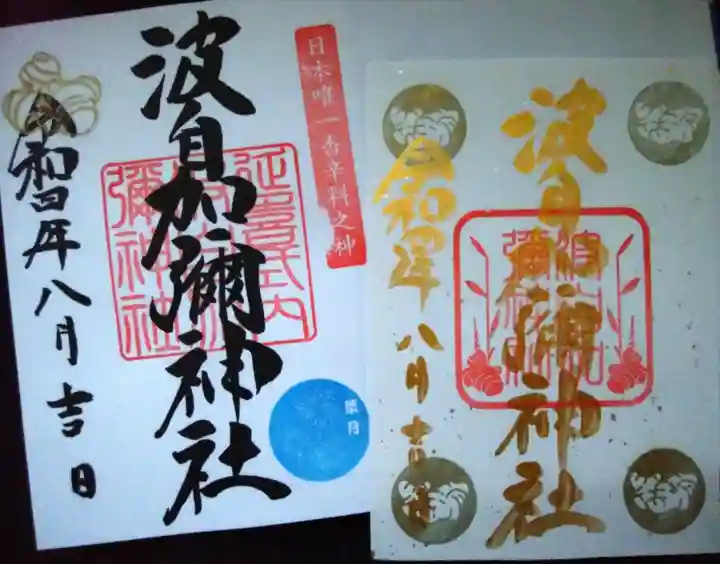 日本唯一香辛料之神
波自加彌神社
延喜式内
波自加
彌神社
令和四年八月吉日
葉月
波自加彌神社
波自加
彌神社
令和四年八月吉日